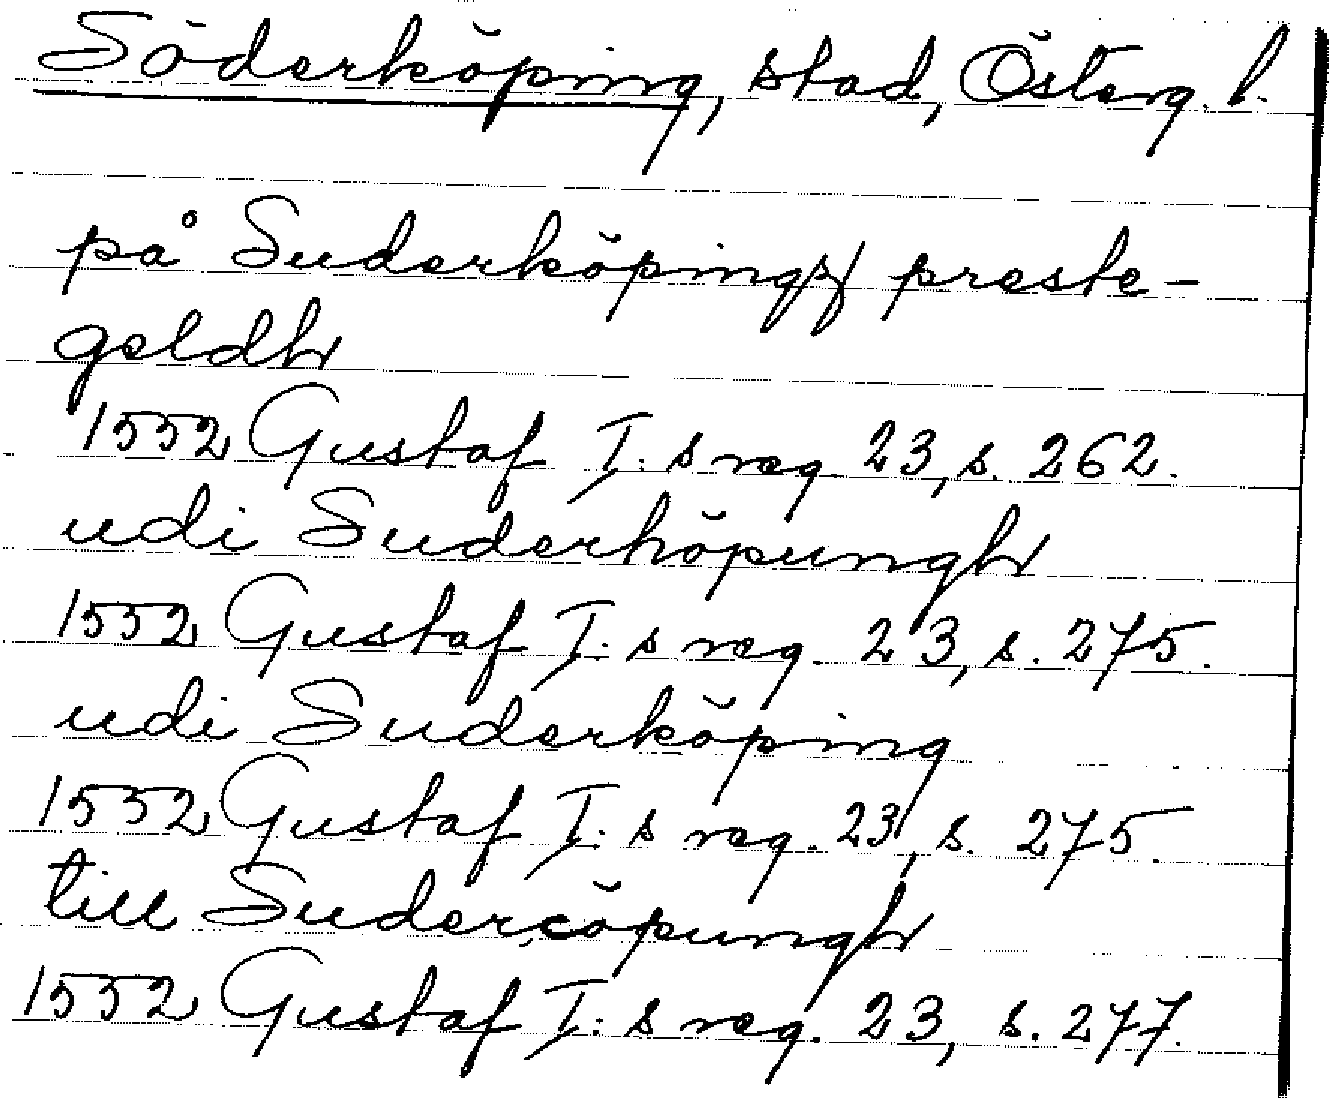 Söderköping, stad, Österg. l.
på Suderköpingz preste-
geldh
1552 Gustaf I:s reg. 23, s. 262.
udi Suderköpungh
1552 Gustaf I:s reg. 23, s. 275.
udi Suderköping
1552 Gustaf I:s reg. 23, s. 275.
till Sudercöpungh
1552 Gustaf I:s reg. 23, s. 277.